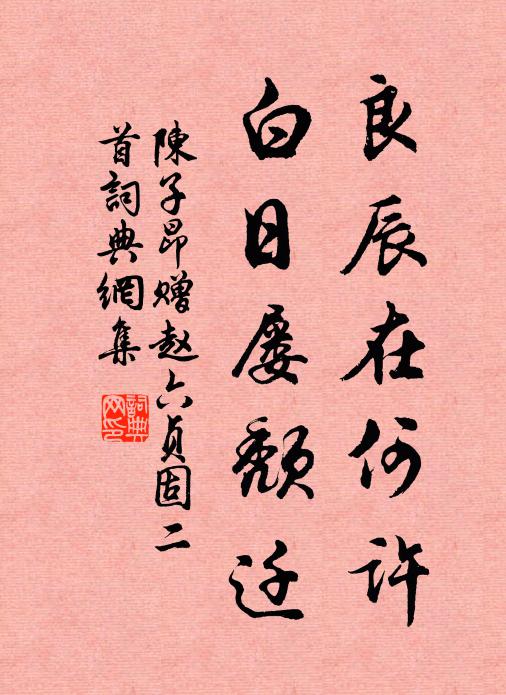 良辰在何许
白日屡颓迁
陳子昂赠赵六贞固二
首詞典網集
詞典网印